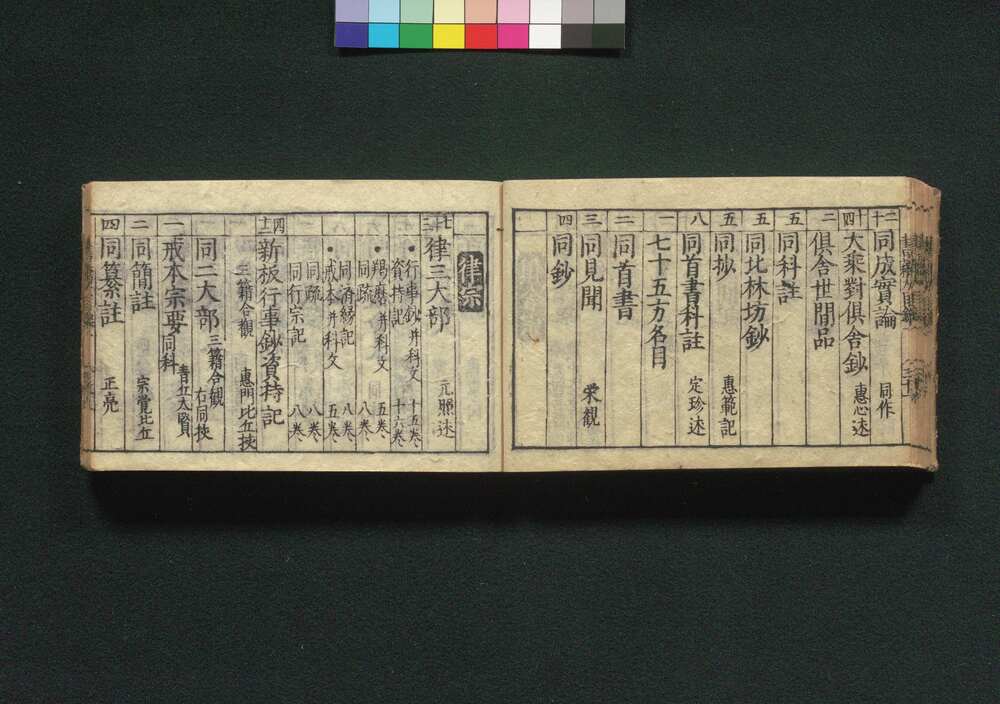 二十 同成實論 同作
十四 大乘對俱舍鈔 惠心述
二 俱舍世間品
五 同科註
五 同比林坊鈔
五 同抄 惠範記
八 同首書科註 定珍述
一 七十五方名目
二 同首書
三 同見聞 栄観
四 同鈔
律宗
律三大部 元照述
行事鈔并科文 十五巻
資持記 十六巻
羯磨并科文 五巻
同疏 八巻
同済縁記 八巻
戒本并科文 五巻
同疏 八巻
同行宗記 八巻
四十二 新板行事鈔資持記
三籍合観 惠門比丘挾
同二大部 三籍合観 右同挾
一 戒本宗要 同科 青丘太賢
二 同簡註 宗覺比丘
四 同纂註 正亮